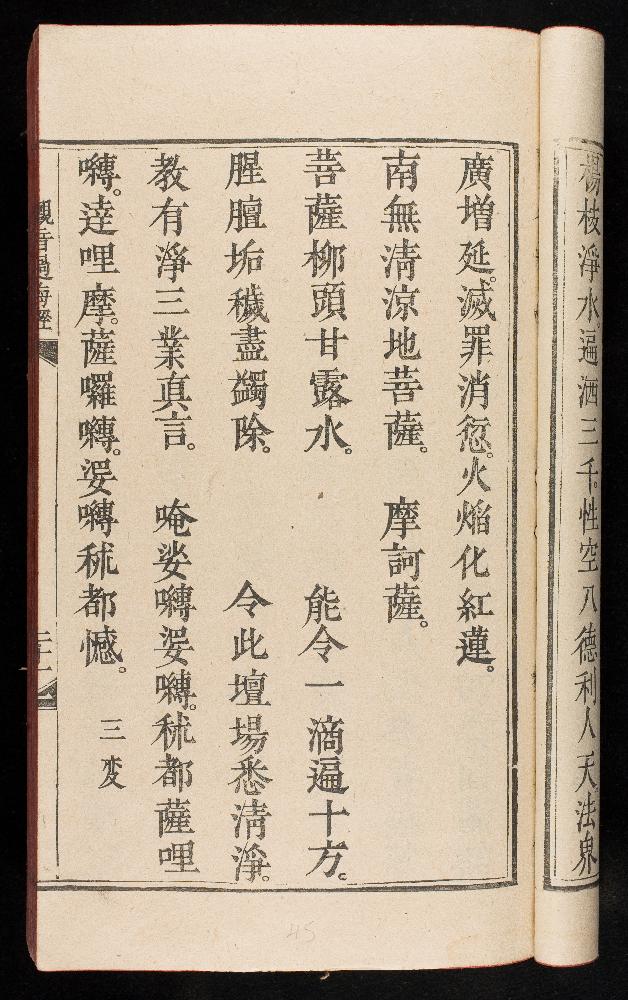 楊枝淨水。遍洒三千。性空八德利人天。法界
廣增延。滅罪消愆。火焰化紅蓮。
南無清涼地菩薩。 摩訶薩。
菩薩柳頭甘露水。 能令一滴遍十方。
腥膻垢穢盡蠲除。 令此壇場悉清淨。
教有淨三業真言。 唵娑嚩婆嚩。秫都薩哩
嚩。達哩摩。薩囉嚩。婆嚩秫都憾。 三变
觀音過海經
二十一
45